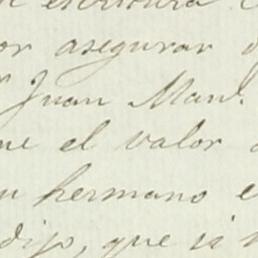 escritura
or asegurar
Juan Manl.
ue el valor
u hermano e
dijo, que is